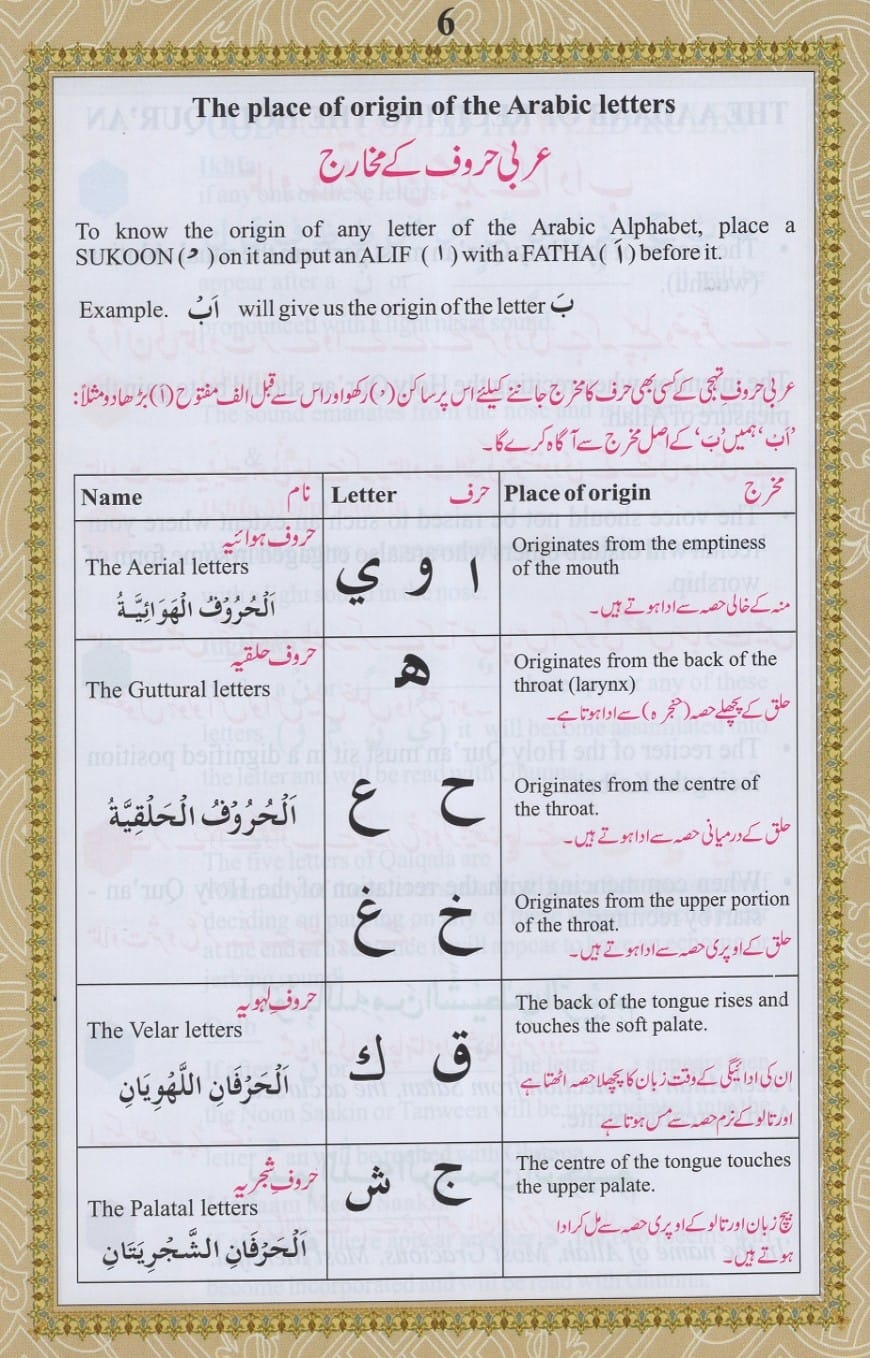 6
The place of origin of the Arabic letters
عربی حروف کے مخارج
To know the origin of any letter of the Arabic Alphabet, place a
SUKOON ( ۡ ) on it and put an ALIF ( ا ) with a FATHA ( اَ ) before it.
Example. اَبُ will give us the origin of the letter بَ
عربی حروف تہجی کے کسی بھی حرف کا مخرج جاننے کیلئے اس پر ساکن ( ۡ ) رکھو اور اس سے قبل الف مفتوح (اَ) بڑھا دو مثلاً:
’اَبْ‘ ہمیں ’بَ‘ کے اصل مخرج سے آگاہ کرے گا۔
Name نام Letter حرف Place of origin مخرج
حروف ہوائیہ
The Aerial letters
اَلْحُرُوْفُ الْهَوَائِيَّةُ
ا و ي
Originates from the emptiness
of the mouth
منہ کے خالی حصہ سے ادا ہوتے ہیں۔
حروف حلقیہ
The Guttural letters
اَلْحُرُوْفُ الْحَلْقِيَّةُ
ه
Originates from the back of the
throat (larynx)
حلق کے پچھلے حصہ (حنجرہ) سے ادا ہوتا ہے۔
ح ع
Originates from the centre of
the throat.
حلق کے درمیانی حصہ سے ادا ہوتے ہیں۔
خ غ
Originates from the upper portion
of the throat.
حلق کے اوپری حصہ سے ادا ہوتے ہیں۔
حروفِ لہویہ
The Velar letters
اَلْحَرْفَانِ اللَّهْوِيَانِ
ق ك
The back of the tongue rises and
touches the soft palate.
ان کی ادائیگی کے وقت زبان کا پچھلا حصہ اٹھتا ہے
اور تالو کے نرم حصہ سے مس ہوتا ہے
حروفِ شجریہ
The Palatal letters
اَلْحَرْفَانِ الشَّجْرِيَتَانِ
ج ش
The centre of the tongue touches
the upper palate.
بیچ زبان اور تالو کے اوپری حصہ سے مل کر ادا
ہوتے ہیں۔